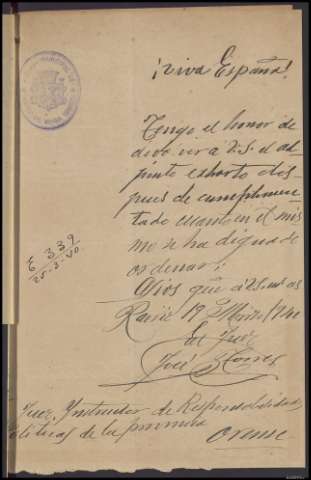 ¡Viva España!
Tengo el honor de
devolver a V.S. el ad-
junto exhorto des-
pues de cumplimen-
tado cuanto en el mis
mo se ha dignado
ordenar;
Dios que a V.S. m. as
19 Marzo 1940
El Juez
José
E 339
25-3-40
Juez Instructor de Responsabilidades
Politicas de la provincia
Orense